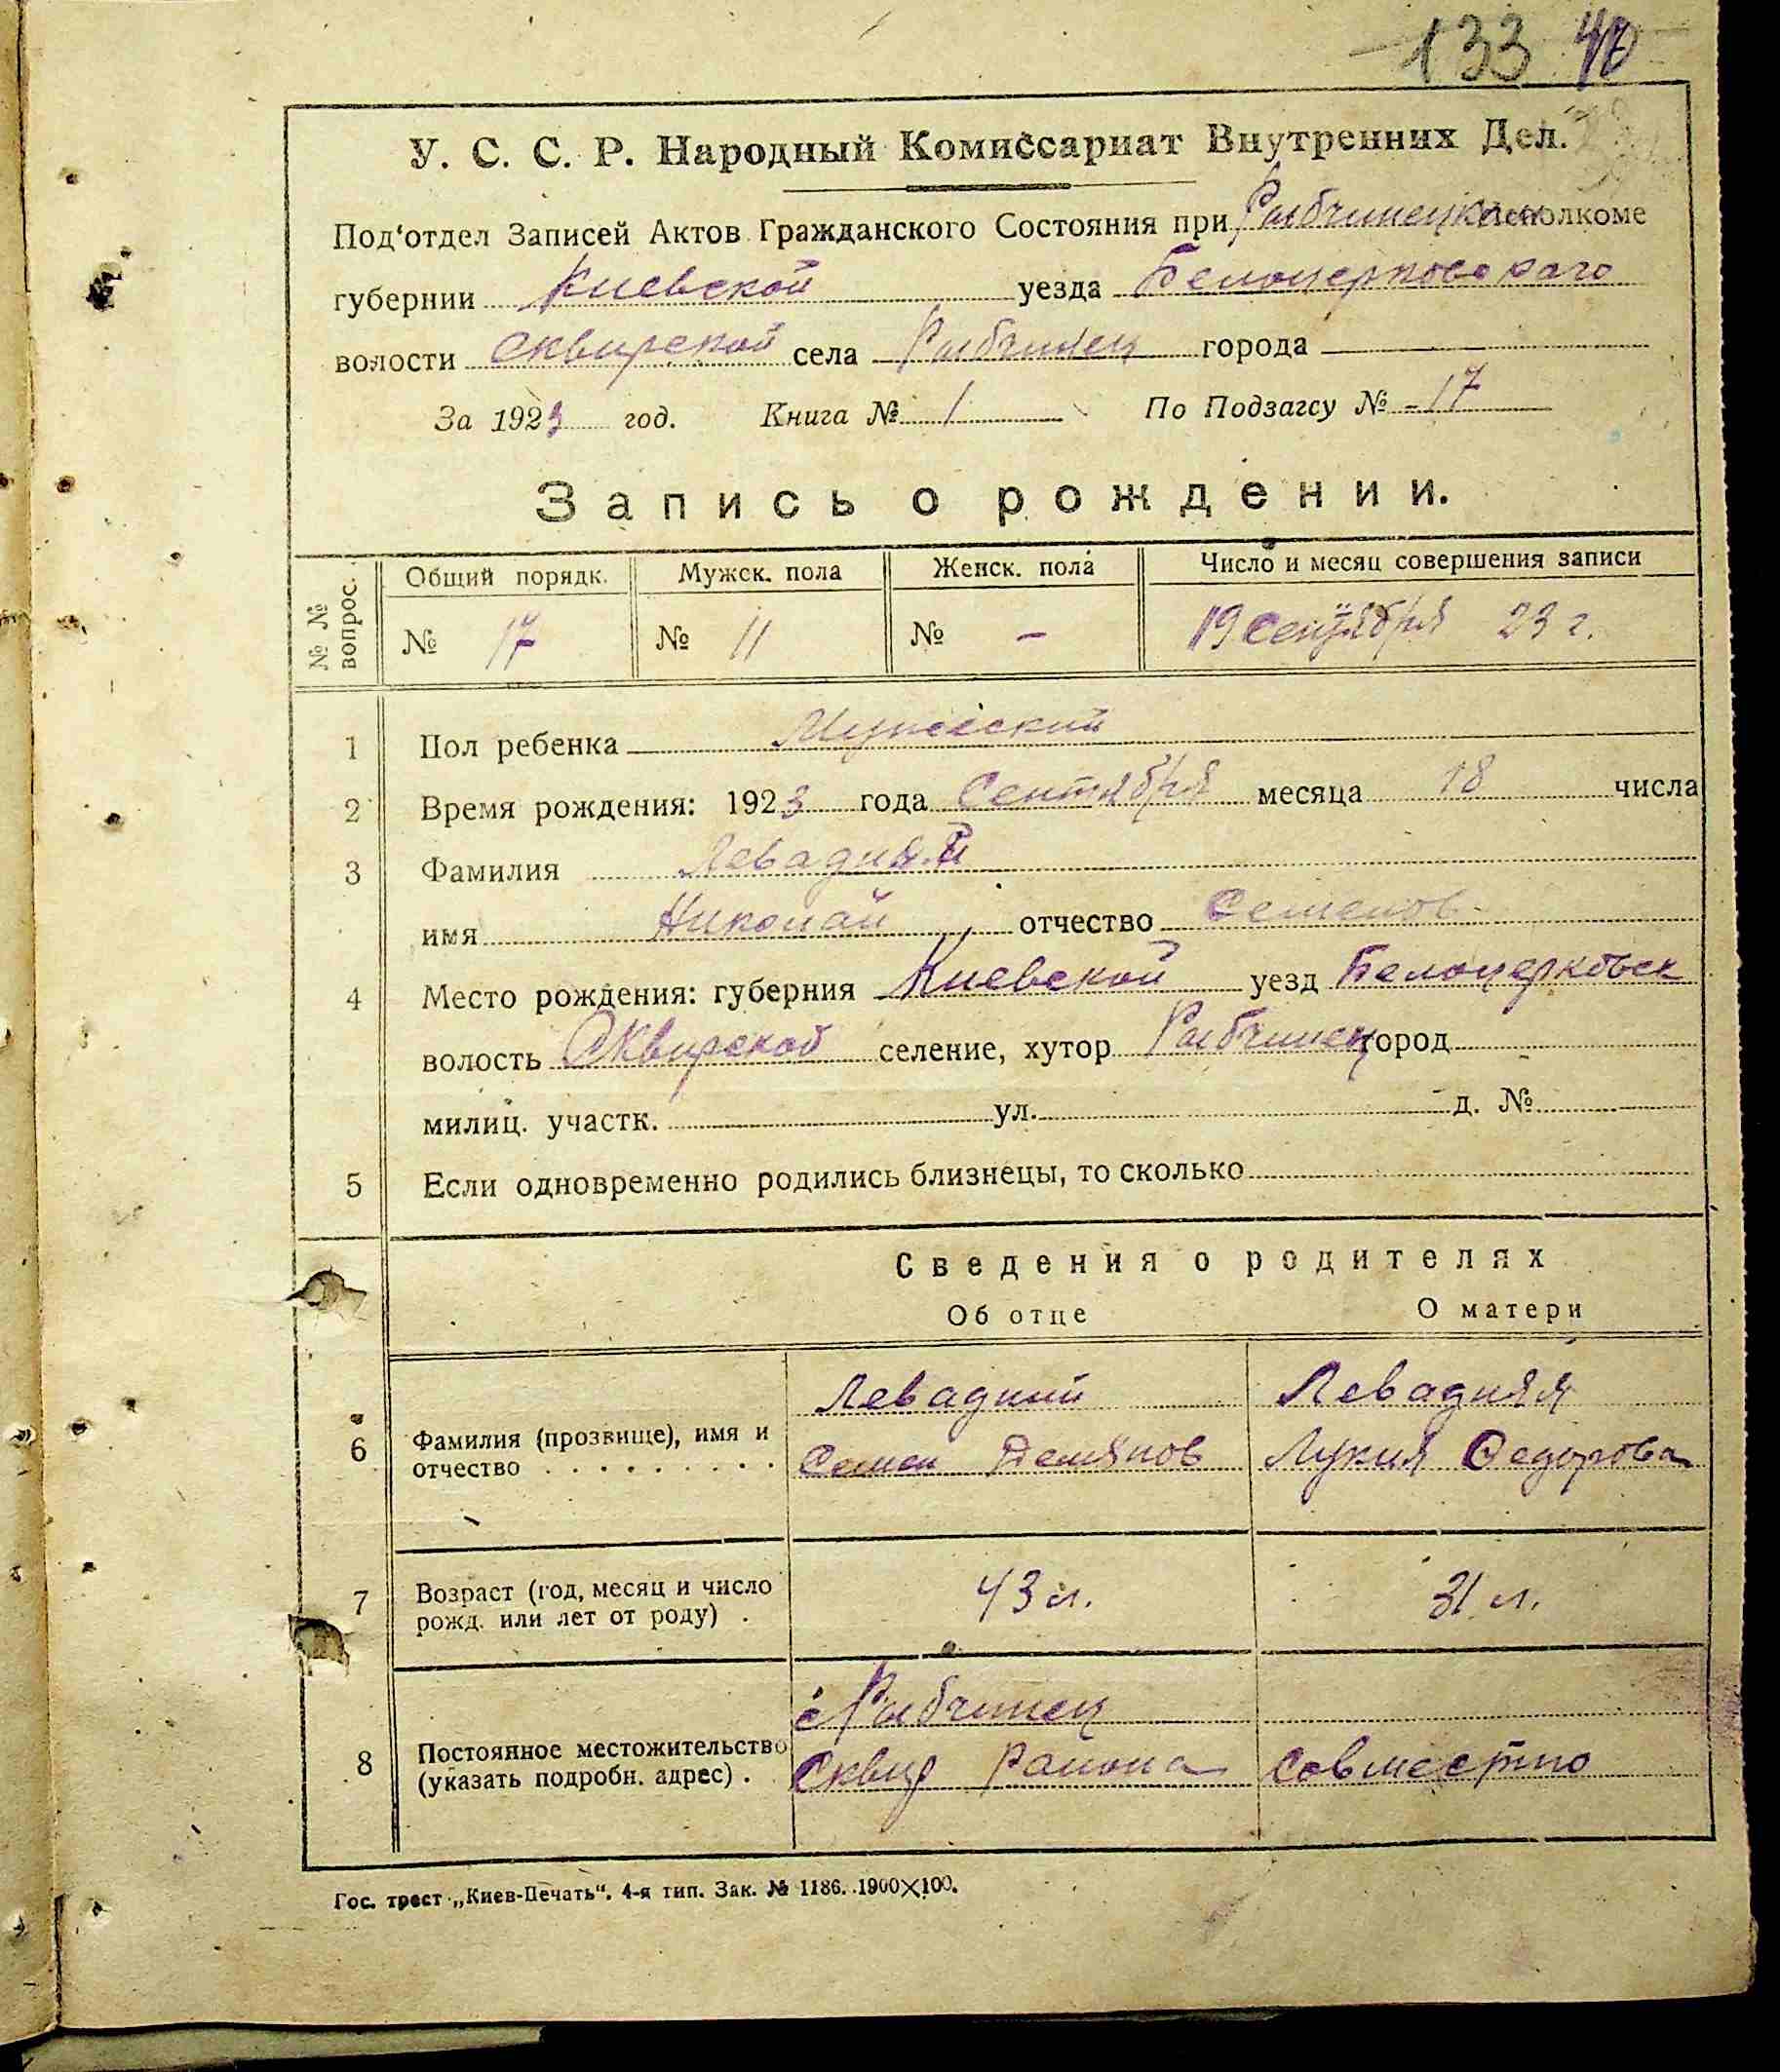 133 40
У. С. С. Р. Народный Комиссариат Внутренних Дел.
Под‘отдел Записей Актов Гражданского Состояния при Рыбчинецком исполкоме
губернии Киевской уезда Белоцерковскаго
волости Сквирской села Рыбчинец города
За 1923 год. Книга № 1 По Подзагсу № 17
Запись о рождении.
№ № вопрос. Общий порядк. Мужск. пола Женск. пола Число и месяц совершения записи
№ 17 № 11 № – 19 Сентября 23 г.
1 Пол ребенка Мужеский
2 Время рождения: 1923 года Сентября месяца 18 числа
3 Фамилия Левадний
имя Николай отчество Семенов
4 Место рождения: губерния Киевской уезд Белоцерковск
волость Сквирской селение, хутор Рыбчинец город
милиц. участк. ул. д. №
5 Если одновременно родились близнецы, то сколько
Сведения о родителях
Об отце О матери
Левадний Левадняя
6 Фамилия (прозвище), имя и отчество Семен Демянов Лукия Федорова
7 Возраст (год, месяц и число рожд. или лет от роду) 43 л. 31 л.
с Рыбчинец
8 Постоянное местожительство (указать подробн. адрес) Сквир Района Совместно
Гос. трест „Киев-Печать“. 4-я тип. Зак. № 1186. 1900×100.